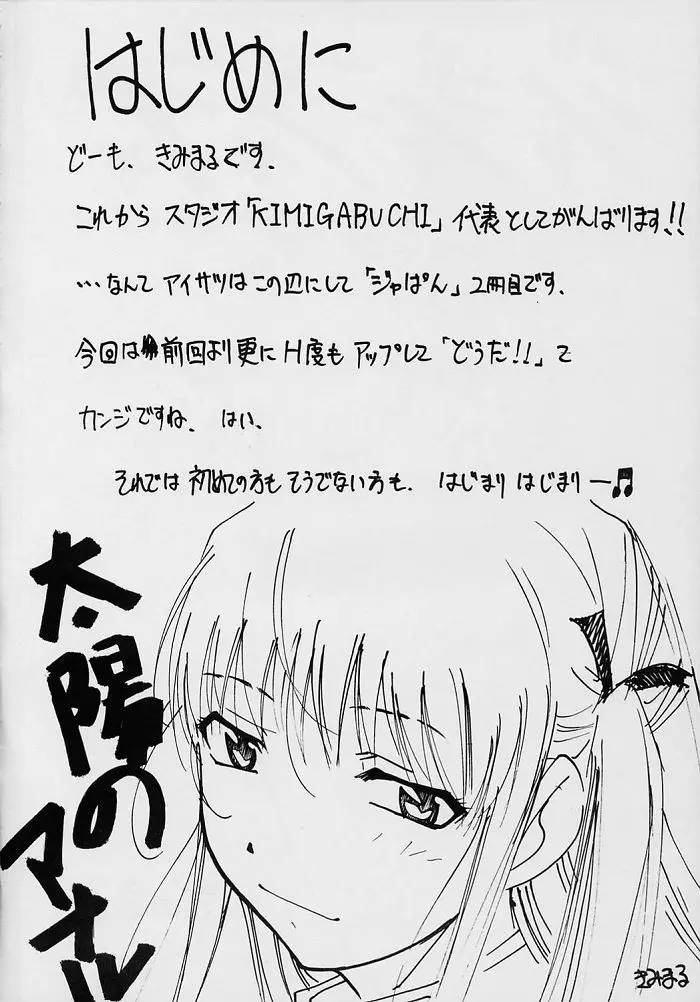 はじめに
どーも、きみまるです.
これから スタジオ「KIMIGABUCHI」代表としてがんばります!!
…なんて アイサツはこの辺にして「ジャぱん」2冊目です.
今回は前回より更に H度も アップして「どうだ!!」て
カンジですね. はい.
それでは 初めての方も そうでない方も. はじまり はじまりー♫
太陽の
マナル
きみまる